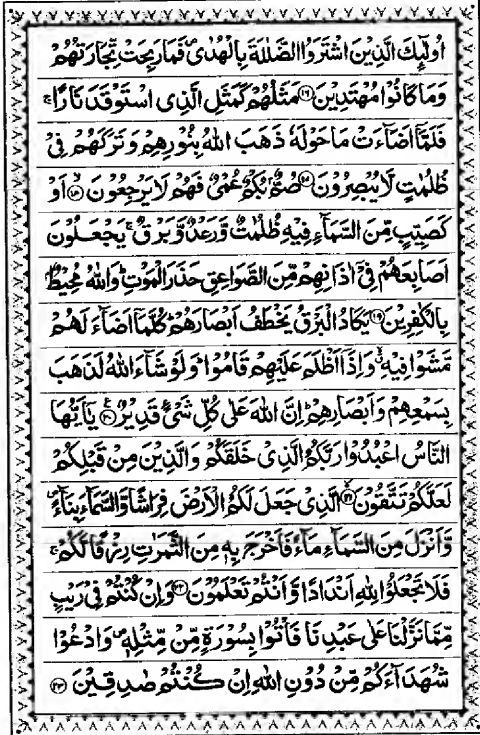 اُولٰٓئِكَ الَّذِيۡنَ اشۡتَرَوُا الضَّلٰلَةَ بِالۡهُدٰى فَمَا رَبِحَتۡ تِّجَارَتُهُمۡ
وَمَا كَانُوۡا مُهۡتَدِيۡنَ ﴿۱۶﴾ مَثَلُهُمۡ كَمَثَلِ الَّذِى اسۡتَوۡقَدَ نَارًا ۚ
فَلَمَّاۤ اَضَآءَتۡ مَا حَوۡلَهٗ ذَهَبَ اللّٰهُ بِنُوۡرِهِمۡ وَتَرَكَهُمۡ فِىۡ
ظُلُمٰتٍ لَّا يُبۡصِرُوۡنَ ﴿۱۷﴾ صُمٌّۢ بُكۡمٌ عُمۡىٌ فَهُمۡ لَا يَرۡجِعُوۡنَ ﴿۱۸﴾ اَوۡ
كَصَيِّبٍ مِّنَ السَّمَآءِ فِيۡهِ ظُلُمٰتٌ وَّرَعۡدٌ وَّبَرۡقٌ ۚ يَجۡعَلُوۡنَ
اَصَابِعَهُمۡ فِىۡۤ اٰذَانِهِمۡ مِّنَ الصَّوَاعِقِ حَذَرَ الۡمَوۡتِ ؕ وَاللّٰهُ مُحِيۡطٌۢ
بِالۡكٰفِرِيۡنَ ﴿۱۹﴾ يَكَادُ الۡبَرۡقُ يَخۡطَفُ اَبۡصَارَهُمۡ ؕ كُلَّمَاۤ اَضَآءَ لَهُمۡ
مَّشَوۡا فِيۡهِ ۙ وَاِذَاۤ اَظۡلَمَ عَلَيۡهِمۡ قَامُوۡا ؕ وَلَوۡ شَآءَ اللّٰهُ لَذَهَبَ
بِسَمۡعِهِمۡ وَاَبۡصَارِهِمۡ ؕ اِنَّ اللّٰهَ عَلٰى كُلِّ شَىۡءٍ قَدِيۡرٌ ﴿۲۰﴾ يٰٓاَيُّهَا
النَّاسُ اعۡبُدُوۡا رَبَّكُمُ الَّذِىۡ خَلَقَكُمۡ وَالَّذِيۡنَ مِنۡ قَبۡلِكُمۡ
لَعَلَّكُمۡ تَتَّقُوۡنَ ﴿۲۱﴾ الَّذِىۡ جَعَلَ لَكُمُ الۡاَرۡضَ فِرَاشًا وَّالسَّمَآءَ بِنَآءً
وَّاَنۡزَلَ مِنَ السَّمَآءِ مَآءً فَاَخۡرَجَ بِهٖ مِنَ الثَّمَرٰتِ رِزۡقًا لَّكُمۡ ۚ
فَلَا تَجۡعَلُوۡا لِلّٰهِ اَنۡدَادًا وَّاَنۡتُمۡ تَعۡلَمُوۡنَ ﴿۲۲﴾ وَاِنۡ كُنۡتُمۡ فِىۡ رَيۡبٍ
مِّمَّا نَزَّلۡنَا عَلٰى عَبۡدِنَا فَاۡتُوۡا بِسُوۡرَةٍ مِّنۡ مِّثۡلِهٖ وَادۡعُوۡا
شُهَدَآءَكُمۡ مِّنۡ دُوۡنِ اللّٰهِ اِنۡ كُنۡتُمۡ صٰدِقِيۡنَ ﴿۲۳﴾